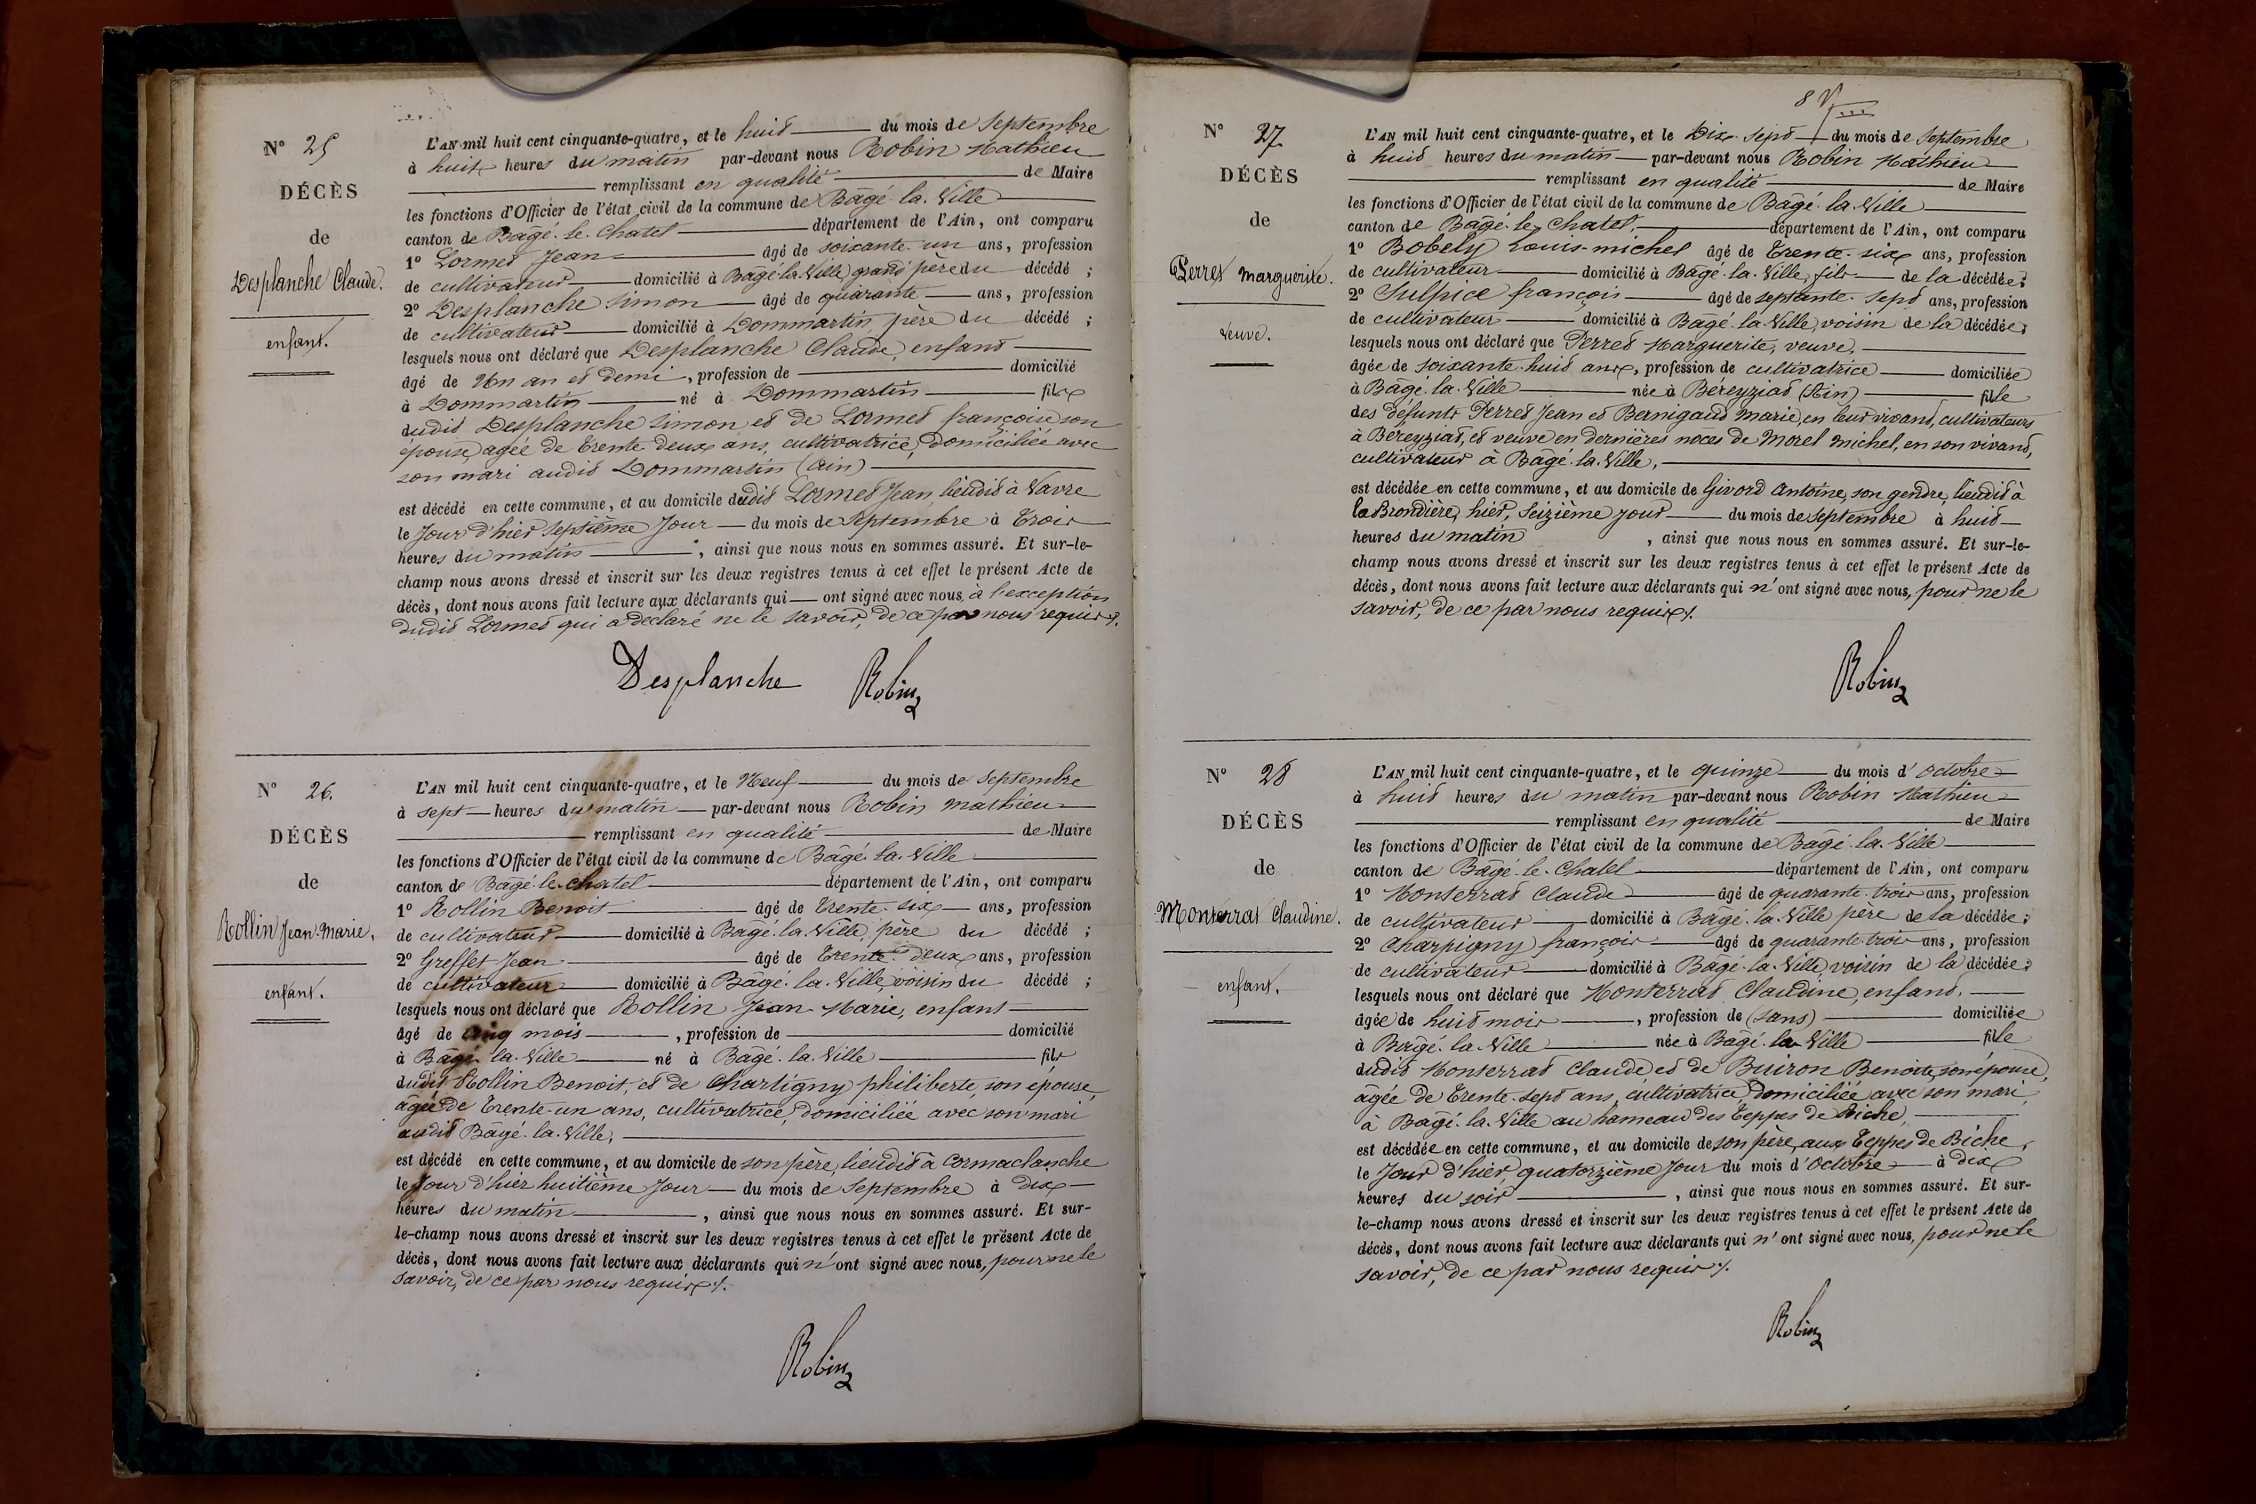 N° 25
DÉCÈS
de
Desplanche Claude.
enfant.
L'AN mil huit cent cinquante-quatre, et le huit du mois de Septembre
à huit heures du matin par-devant nous Robin Mathieu
remplissant en qualité de Maire
les fonctions d'Officier de l'état civil de la commune de Bâgé-la-Ville
canton de Bâgé-le-Chatel département de l'Ain, ont comparu
1° Lormet Jean âgé de soixante-un ans, profession
de cultivateur domicilié à Bâgé-la-Ville, grand père du décédé ;
2° Desplanche Simon âgé de quarante ans, profession
de cultivateur domicilié à Dommartin, père du décédé ;
lesquels nous ont déclaré que Desplanche Claude, enfant
âgé de Un an et demi, profession de domicilié
à Dommartin né à Dommartin fils
dudit Desplanche Simon et de Lormet françoise son
épouse, agée de trente deux ans, cultivatrice, domiciliée avec
son mari audit Dommartin (Ain)
est décédé en cette commune, et au domicile dudit Lormet Jean, lieudit à Vavre
le Jour d'hier septième Jour du mois de Septembre à trois
heures du matin, ainsi que nous nous en sommes assuré. Et sur-le-
champ nous avons dressé et inscrit sur les deux registres tenus à cet effet le présent Acte de
décès, dont nous avons fait lecture aux déclarants qui ont signé avec nous, à l'exception
dudit Lormet qui a déclaré ne le savoir, de ce par nous requis ./.
Desplanche Robin
N° 26.
DÉCÈS
de
Rollin Jean-Marie.
enfant.
L'AN mil huit cent cinquante-quatre, et le Neuf du mois de Septembre
à sept heures du matin par-devant nous Robin Mathieu
remplissant en qualité de Maire
les fonctions d'Officier de l'état civil de la commune de Bâgé-la-Ville
canton de Bâgé-le-Chatel département de l'Ain, ont comparu
1° Rollin Benoit âgé de trente-six ans, profession
de cultivateur domicilié à Bagé-la-Ville, père du décédé ;
2° Greffet Jean âgé de trente-deux ans, profession
de cultivateur domicilié à Bâgé-la-Ville, voisin du décédé ;
lesquels nous ont déclaré que Rollin Jean-Marie, enfant
âgé de cinq mois, profession de domicilié
à Bâgé-la-Ville né à Bâgé-la-Ville fils
dudit Rollin Benoit, et de Chartigny philiberte, son épouse,
âgée de trente-un ans, cultivatrice, domiciliée avec son mari
audit Bâgé-la-Ville,
est décédé en cette commune, et au domicile de son père, lieudit à Cormaclanche
le Jour d'hier huitième Jour du mois de Septembre à dix
heures du matin, ainsi que nous nous en sommes assuré. Et sur-
le-champ nous avons dressé et inscrit sur les deux registres tenus à cet effet le présent Acte de
décès, dont nous avons fait lecture aux déclarants qui n'ont signé avec nous, pour ne le
savoir, de ce par nous requis ./.
Robin
8
N° 27
DÉCÈS
de
Perret Marguerite.
veuve.
L'AN mil huit cent cinquante-quatre, et le Dix-sept du mois de Septembre
à huit heures du matin par-devant nous Robin Mathieu
remplissant en qualité de Maire
les fonctions d'Officier de l'état civil de la commune de Bâgé-la-Ville
canton de Bâgé-le-Chatel, département de l'Ain, ont comparu
1° Bobely Louis-michel âgé de trente-six ans, profession
de cultivateur domicilié à Bâgé-la-Ville, fils de la décédée ;
2° Sulpice françois âgé de septante-sept ans, profession
de cultivateur domicilié à Bâgé-la-Ville, voisin de la décédée ;
lesquels nous ont déclaré que Perret Marguerite, veuve,
âgée de soixante-huit ans, profession de cultivatrice domiciliée
à Bâgé-la-Ville née à Béreyziat (Ain) fille
des défunts Perret Jean et Bernigaud Marie, en leur vivant, cultivateurs
à Béreyziat, et veuve en dernières noces de Morel Michel, en son vivant,
cultivateur à Bâgé-la-Ville,
est décédée en cette commune, et au domicile de Givord Antoine, son gendre, lieudit à
la Brondière, hier, seizième jour du mois de Septembre à huit
heures du matin, ainsi que nous nous en sommes assuré. Et sur-le-
champ nous avons dressé et inscrit sur les deux registres tenus à cet effet le présent Acte de
décès, dont nous avons fait lecture aux déclarants qui n'ont signé avec nous, pour ne le
savoir, de ce par nous requis ./.
Robin
N° 28
DÉCÈS
de
Monterrat Claudine.
enfant.
L'AN mil huit cent cinquante-quatre, et le quinze du mois d'Octobre
à huit heures du matin par-devant nous Robin Mathieu
remplissant en qualité de Maire
les fonctions d'Officier de l'état civil de la commune de Bâgé-la-Ville
canton de Bâgé-le-Chatel département de l'Ain, ont comparu
1° Monterrat Claude âgé de quarante-trois ans, profession
de cultivateur domicilié à Bâgé-la-Ville père de la décédée ;
2° Charpigny françois âgé de quarante-trois ans, profession
de cultivateur domicilié à Bâgé-la-Ville, voisin de la décédée ;
lesquels nous ont déclaré que Monterrat Claudine, enfant,
âgée de huit mois, profession de (sans) domiciliée
à Bâgé-la-Ville née à Bâgé-la-Ville fille
dudit Monterrat Claude et de Buiron Benoite, son épouse,
âgée de trente-sept ans, cultivatrice, domiciliée avec son mari
à Bâgé-la-Ville au hameau des Teppes de Biche,
est décédée en cette commune, et au domicile de son père, aux Teppes de Biche,
le Jour d'hier, quatorzième Jour du mois d'Octobre à dix
heures du soir, ainsi que nous nous en sommes assuré. Et sur-
le-champ nous avons dressé et inscrit sur les deux registres tenus à cet effet le présent Acte de
décès, dont nous avons fait lecture aux déclarants qui n'ont signé avec nous, pour ne le
savoir, de ce par nous requis ./.
Robin